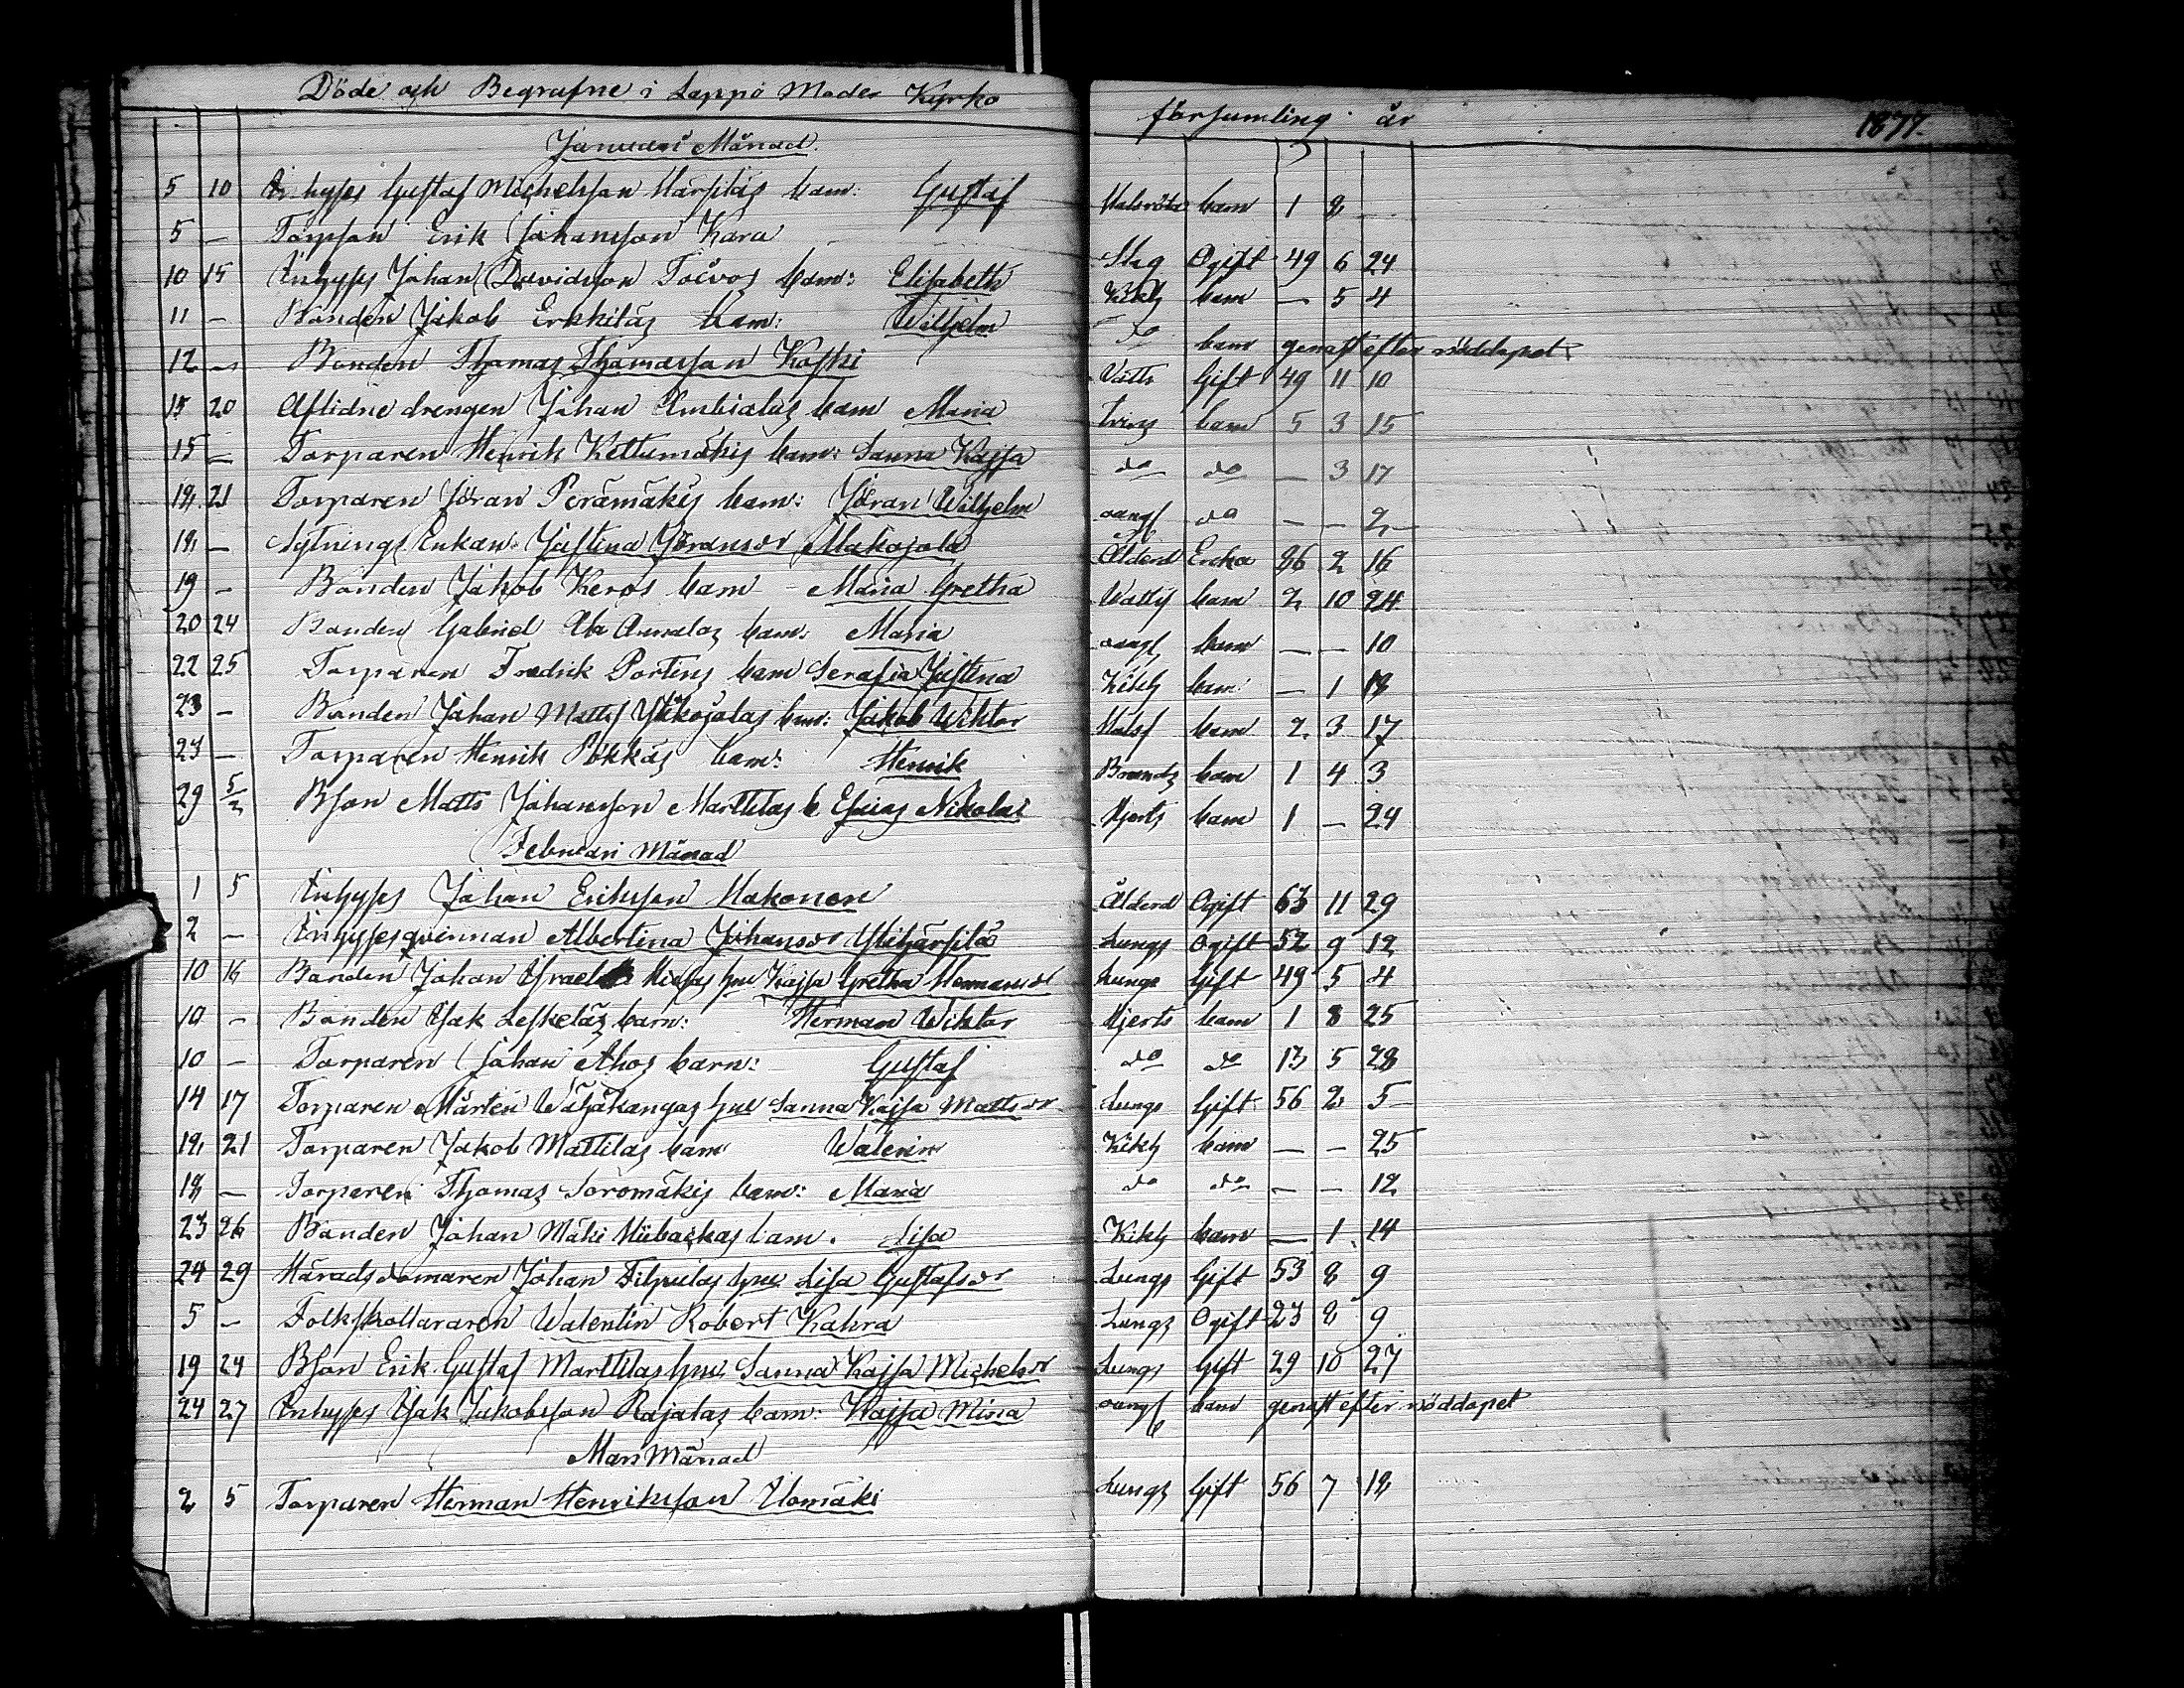 Döde och Begrafne i Lappo Moder Kyrko församling år 1877.
Januari Månad.
5 10 Inhyses Gustaf Michelsson Härsiläs barn: Gustaf Halsröta barn 1 8
5 — Torpson Erik Johansson Kara Slag Ogift 49 6 24
10 15 Inhyses Johan Davidsson Toivos barn: Elisabeth Kikh barn — 5 4
11 — Bonden Jakob Erkkiläs barn: Wilhelm do barn genast efter nöddopet
12 — Bonden Thomas Thomasson Koski Vatts Gift 49 11 10
15 20 Aflidne drengen Johan barn Maria barn 5 3 15
15 — Torparen Henrik Kettumäkis barn: Sanna Kajsa do do — 3 17
18 21 Torparen Jöran Perämäkis barn: Jöran Wilhelm oangf do — — 2
18 — Sytnings Enkan Justina Göransdr Makojola Ålderd Enka 86 2 16
19 — Bonden Jakob Keros barn — Maria Gretha Watts barn 2 10 24
20 24 Bonden Gabriel Ala Annalas barn: Maria oangf barn — — 10
22 25 Torparen Fredrik Portins barn Serafia Justina Kikh barn — 1 18
23 — Bonden Johan Matts Ylikojolas barn: Jakob Wiktor Halsf barn 2 3 17
23 — Torparen Henrik Pökkäs barn: Henrik barn 1 4 3
29 5/2 Bson Matts Johansson Marttilas b Esaias Nikolai Hjerts barn 1 — 24
Februari Månad
1 5 Inhyses Johan Eriksson Hakonen Ålderd Ogift 63 11 29
2 — Inhysesqvinnan Albertina Johansdr Ylihärsilä Lungs Ogift 52 9 12
10 16 Bonden Johan Israels hu Kajsa Gretha Hermansdr Lungs Gift 49 5 4
10 — Bonden Isak Leskeläs barn: Herman Wiktor Hjerts barn 1 8 25
10 — Torparen Johan Ahos barn: Gustaf do do 13 5 28
14 17 Torparen Mårten Wäjäkangas hu Sanna Kajsa Mattsdr Lungs Gift 56 2 5
18 21 Torparen Jakob Mattilas barn Walerin Kikh barn — — 25
18 — Torparen Thomas Soromäkis barn: Maria do do — — 12
23 26 Bonden Johan Mäki Hiibackas barn. Lisa Kikh barn — 1 14
24 29 Häradsdomaren Johan Filpulas hu Lisa Gustafsdr Lungs Gift 53 8 9
5 — Folkskollararen Walentin Robert Kahra Lungs Ogift 23 8 9
19 24 Bson Erik Gustaf Marttilas hu Sanna Kajsa Michelsdr Lungs Gift 29 10 27
24 27 Inhyses Isak Jakobsson Rajalas barn: Kajsa Mina oangf barn genast efter nöddopet
Mars Månad
2 5 Torparen Herman Henriksson Uomäki Lungs Gift 56 7 18